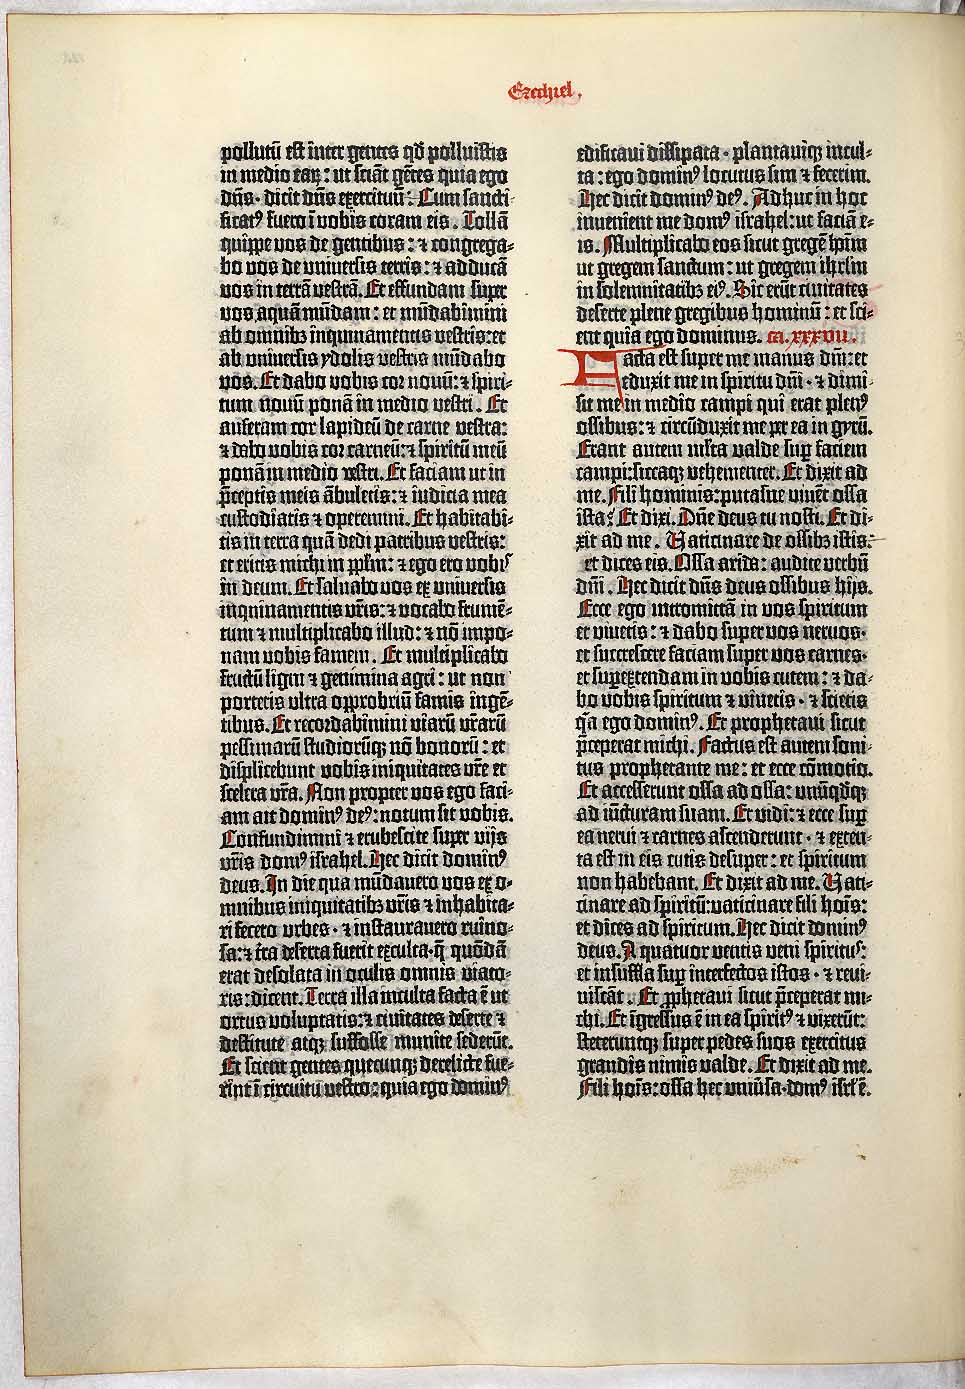 Ezechiel.
pollutū est inter gentes qd̄ polluistis
in medio eaꝝ: ut sciāt gētes quia ego
dn̄s· dicit dn̄s exercituū: Cum sancti-
ficatꝰ fuero ī vobis coram eis. Tollā
quippe vos de gentibus: ⁊ congrega-
bo vos de universis terris: ⁊ adducā
vos in terrā vestrā. Et effundam super
vos aquā mūdam: et mūdabimini
ab omnibꝫ inquinamentis vestris: et
ab universis ydolis vestris mūdabo
vos. Et dabo vobis cor novū: ⁊ spiri-
tum novū ponā in medio vestri. Et
auferam cor lapideū de carne vestra:
⁊ dabo vobis cor carneū: ⁊ spiritū meū
ponā in medio vestri. Et faciam ut in
p̄ceptis meis ābuletis: ⁊ iudicia mea
custodiatis ⁊ operemini. Et habitabi-
tis in terra quā dedi patribus vestris:
et eritis michi in pplm: ⁊ ego ero vobis
in deum. Et salvabo vos ex universis
inquinamentis vr̄is: ⁊ vocabo frumē-
tum ⁊ multiplicabo illud: ⁊ nō impo-
nam vobis famem. Et multiplicabo
fructū ligni ⁊ genimina agri: ut non
portetis ultra opprobriū famis in gē-
tibus. Et recordabimini viarū vr̄arū
pessimarū studiorūqꝫ nō bonorū: et
displicebunt vobis iniquitates vr̄e et
scelera vr̄a. Non propter vos ego faci-
am ait dominꝰ deꝰ: notum sit vobis.
Confundimini ⁊ erubescite super vijs
vr̄is domꝰ israhel. Hec dicit dominꝰ
deus. In die qua mūdavero vos ex o-
mnibus iniquitatibꝫ vr̄is ⁊ inhabita-
ri fecero urbes· ⁊ instauravero ruino-
sa: ⁊ t̄ra deserta fuerit exculta· q̄ quōdā
erat desolata in oculis omnis viato-
ris: dicent. Terra illa inculta facta ē ut
ortus voluptatis: ⁊ civitates deserte ⁊
destitute atqꝫ suffosse munite sederūt.
Et scient gentes quecunqꝫ derelicte fue-
rint ī circuitu vestro: quia ego dominꝰ
edificavi dissipata· plantaviqꝫ incul-
ta: ego dominꝰ locutus sim ⁊ fecerim.
Hec dicit dominꝰ deꝰ. Adhuc in hoc
invenient me domꝰ israhel: ut faciā e-
is. Multiplicabo eos sicut gregē hoīm
ut gregem sanctum: ut gregem ihrlm
in solemnitatibꝫ eiꝰ. Sic erūt civitates
deserte plene gregibus hominū: et sci-
ent quia ego dominus. ca. xxxvii.
Facta est super me manus dn̄i: et
eduxit me in spiritu dn̄i· ⁊ dimi-
sit me in medio campi qui erat plenꝰ
ossibus: ⁊ circūduxit me per ea in gyrū.
Erant autem ml̄ta valde suꝑ faciem
campi: siccaqꝫ vehementer. Et dixit ad
me. Fili hominis: putasne vivēt ossa
ista? Et dixi. Dn̄e deus tu nosti. Et di-
xit ad me. Vaticinare de ossibꝫ istis:
et dices eis. Ossa arida: audite verbū
dn̄i. Hec dicit dn̄s deus ossibus hijs.
Ecce ego intromittā in vos spiritum
et vivetis: ⁊ dabo super vos nervos·
et succrescere faciam super vos carnes·
et suꝑextendam in vobis cutem: ⁊ da-
bo vobis spiritum ⁊ vivetis· ⁊ scietis
q̄a ego dominꝰ. Et prophetavi sicut
p̄ceperat michi. Factus est autem soni-
tus prophetante me: et ecce cōmotio.
Et accesserunt ossa ad ossa: unūqd̄qꝫ
ad iūcturam suam. Et vidi: ⁊ ecce suꝑ
ea nervi ⁊ carnes ascenderunt· ⁊ exten-
ta est in eis cutis desuper: et spiritum
non habebant. Et dixit ad me. Vati-
cinare ad spiritū: vaticinare fili hoīs:
et dices ad spiritum. Hec dicit dominꝰ
deus. A quatuor ventis veni spiritus:
et insuffla suꝑ interfectos istos· ⁊ revi-
viscāt. Et ꝓphetavi sicut p̄ceperat mi-
chi. Et īgressus ē in ea spiritꝰ ⁊ vixerūt:
steteruntqꝫ super pedes suos exercitus
grandis nimis valde. Et dixit ad me.
Fili hoīs: ossa hec univ̄sa· domꝰ isrl̄ ē.